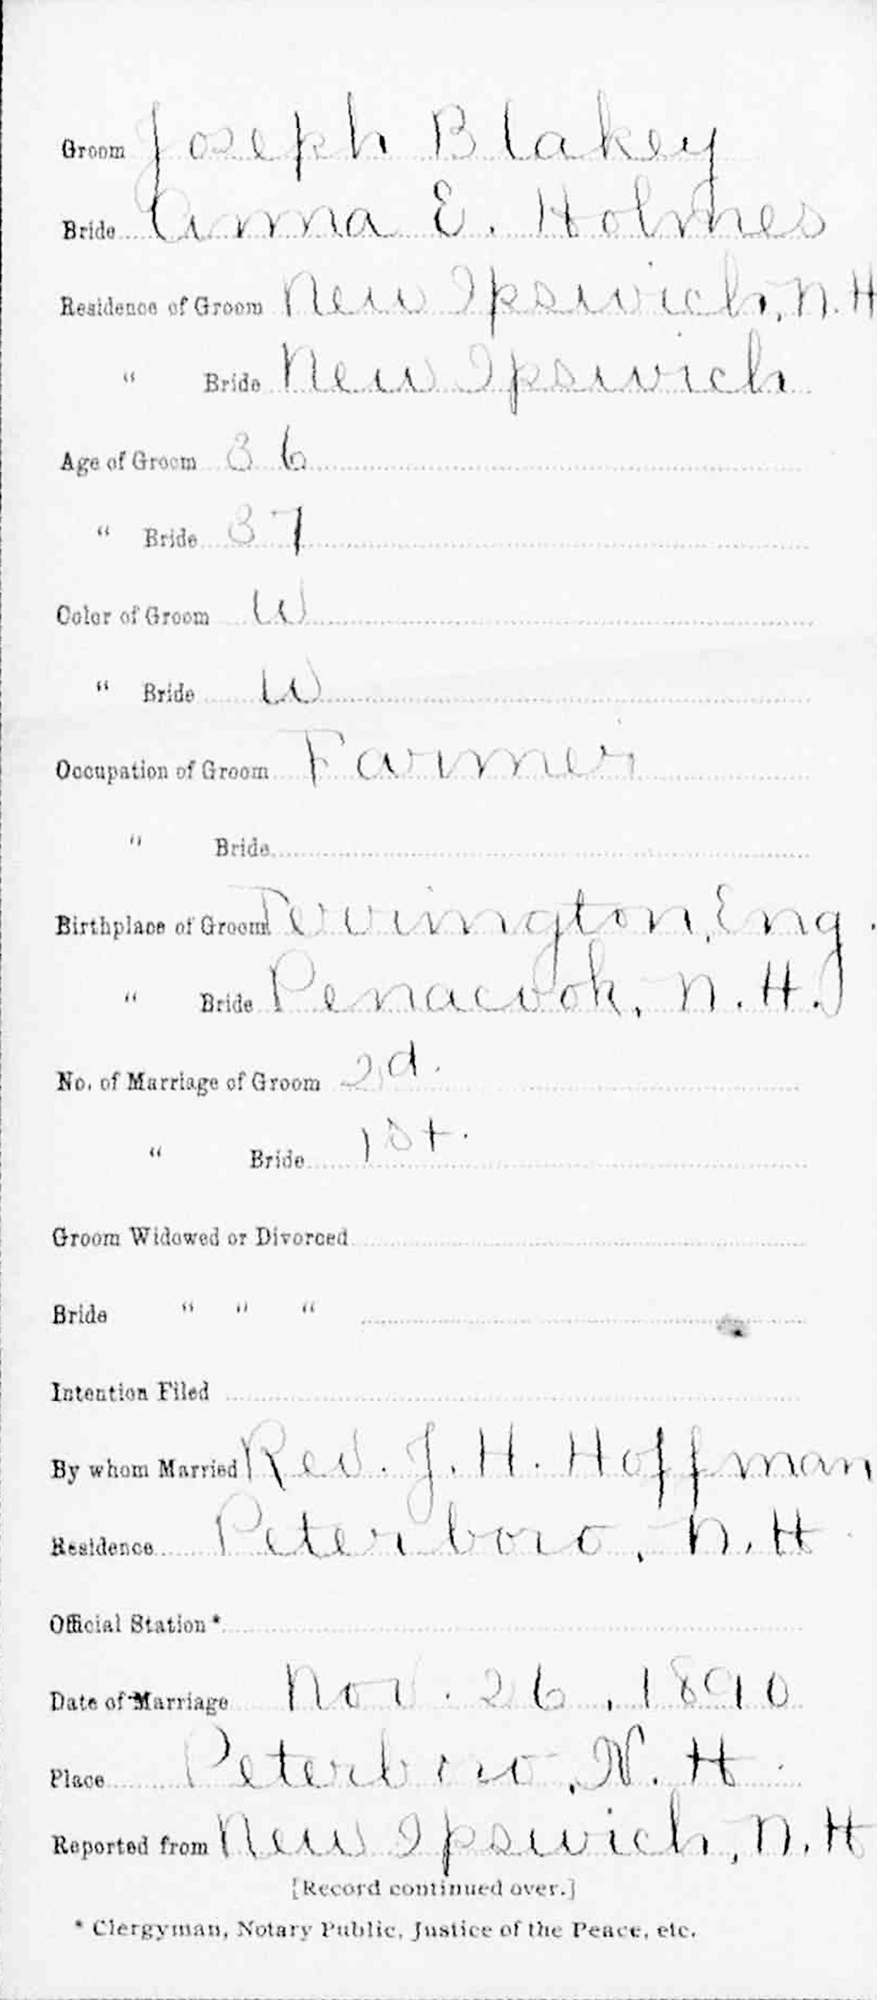 Groom Joseph Blakey
Bride Anna E. Holmes
Residence of Groom New Ipswich, N.H
" Bride New Ipswich
Age of Groom 36
" Bride 37
Color of Groom W
" Bride W
Occupation of Groom Farmer
" Bride
Birthplace of Groom Terrington, Eng.
" Bride Penacook, N.H.
No. of Marriage of Groom 2d.
" Bride 1st.
Groom Widowed or Divorced
Bride " " "
Intention Filed
By whom Married Rev. J. H. Hoffman
Residence Peterboro, N.H.
Official Station*
Date of Marriage Nov. 26, 1890
Place Peterboro, N.H.
Reported from New Ipswich, N.H
[Record continued over.]
* Clergyman, Notary Public, Justice of the Peace, etc.